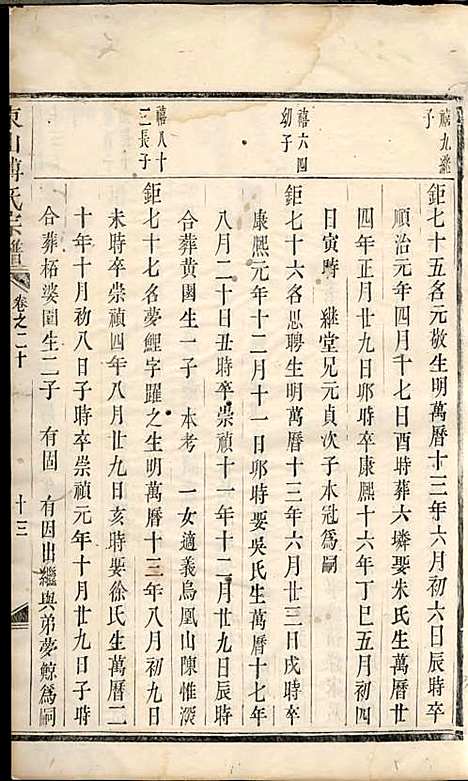 禧九繼子
鉅七十五名元敬生明萬曆十三年六月初六日辰時卒
順治元年四月十七日酉時葬六塘娶朱氏生萬曆廿
四年正月廿九日卯時卒康熙十六年丁巳五月初四
日寅時　繼堂兄元貞次子水冠為嗣
禧六四幼子
鉅七十六名思聘生明萬曆十三年六月廿三日戌時卒
康熙元年十二月十一日卯時娶吳氏生萬曆十七年
八月二十日丑時卒崇禎十一年十二月廿九日辰時
合葬黃園生一子　本考　一女適義烏凰山陳惟深
禧八十三長子
鉅七十七名夢鯉字躍之生明萬曆十三年八月初九日
未時卒崇禎四年八月廿九日亥時娶徐氏生萬曆二
十年十月初八日子時卒崇禎元年十月廿九日子時
合葬栢婆園生二子　有固　有因出繼與弟夢鯨為嗣
東山傅氏宗譜　卷之二十　十三